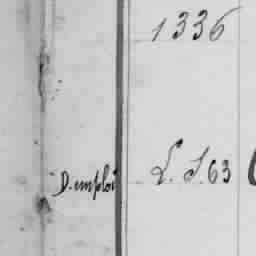 1336
D. emploi L. S. 63